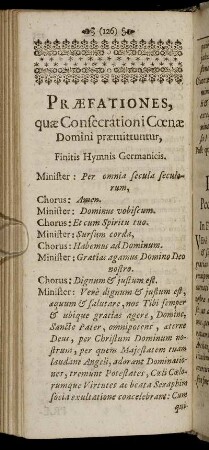 (126)
PRÆFATIONES,
quæ Consecrationi Cœnæ
Domini præmittuntur,
Finitis Hymnis Germanicis.
Minister: Per omnia secula seculo-
rum,
Chorus: Amen.
Minister: Dominus vobiscum.
Chorus: Et cum Spiritu tuo.
Minister: Sursum corda,
Chorus: Habemus ad Dominum.
Minister: Gratias agamus Domino Deo
nostro.
Chorus: Dignum & justum est.
Minister: Verè dignum & justum est,
æquum & salutare, nos Tibi semper
& ubique gratias agere, Domine,
Sancte Pater, omnipotens, æterne
Deus, per Christum Dominum no-
strum, per quem Majestatem tuam
laudant Angeli, adorant Dominatio-
nes, tremunt Potestates, Cœli Cœlo-
rumque Virtutes ac beata Seraphim
socia exultatione concelebrant: Cum
qui-